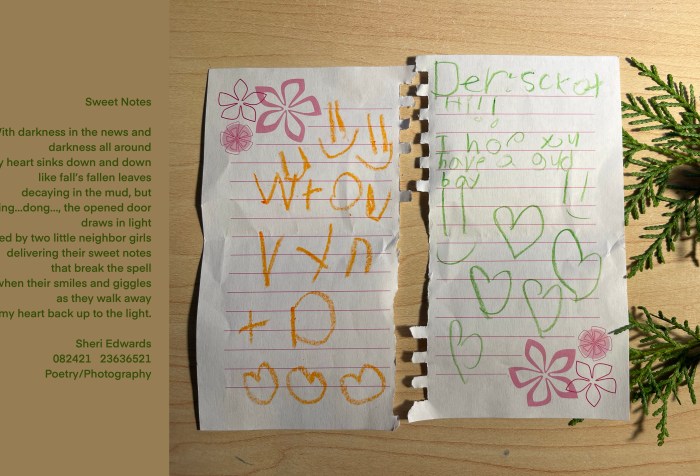 Sweet Notes
With darkness in the news and
darkness all around
heart sinks down and down
like fall's fallen leaves
decaying in the mud, but
the opened door
draws in light
by two little neighbor girls
delivering their sweet notes
that break the spell
when their smiles and giggles
as they walk away
my heart back up to the light.
Sheri Edwards
082421 23636521
Poetry/Photography
Hi!!
I hop
have a gud
bay